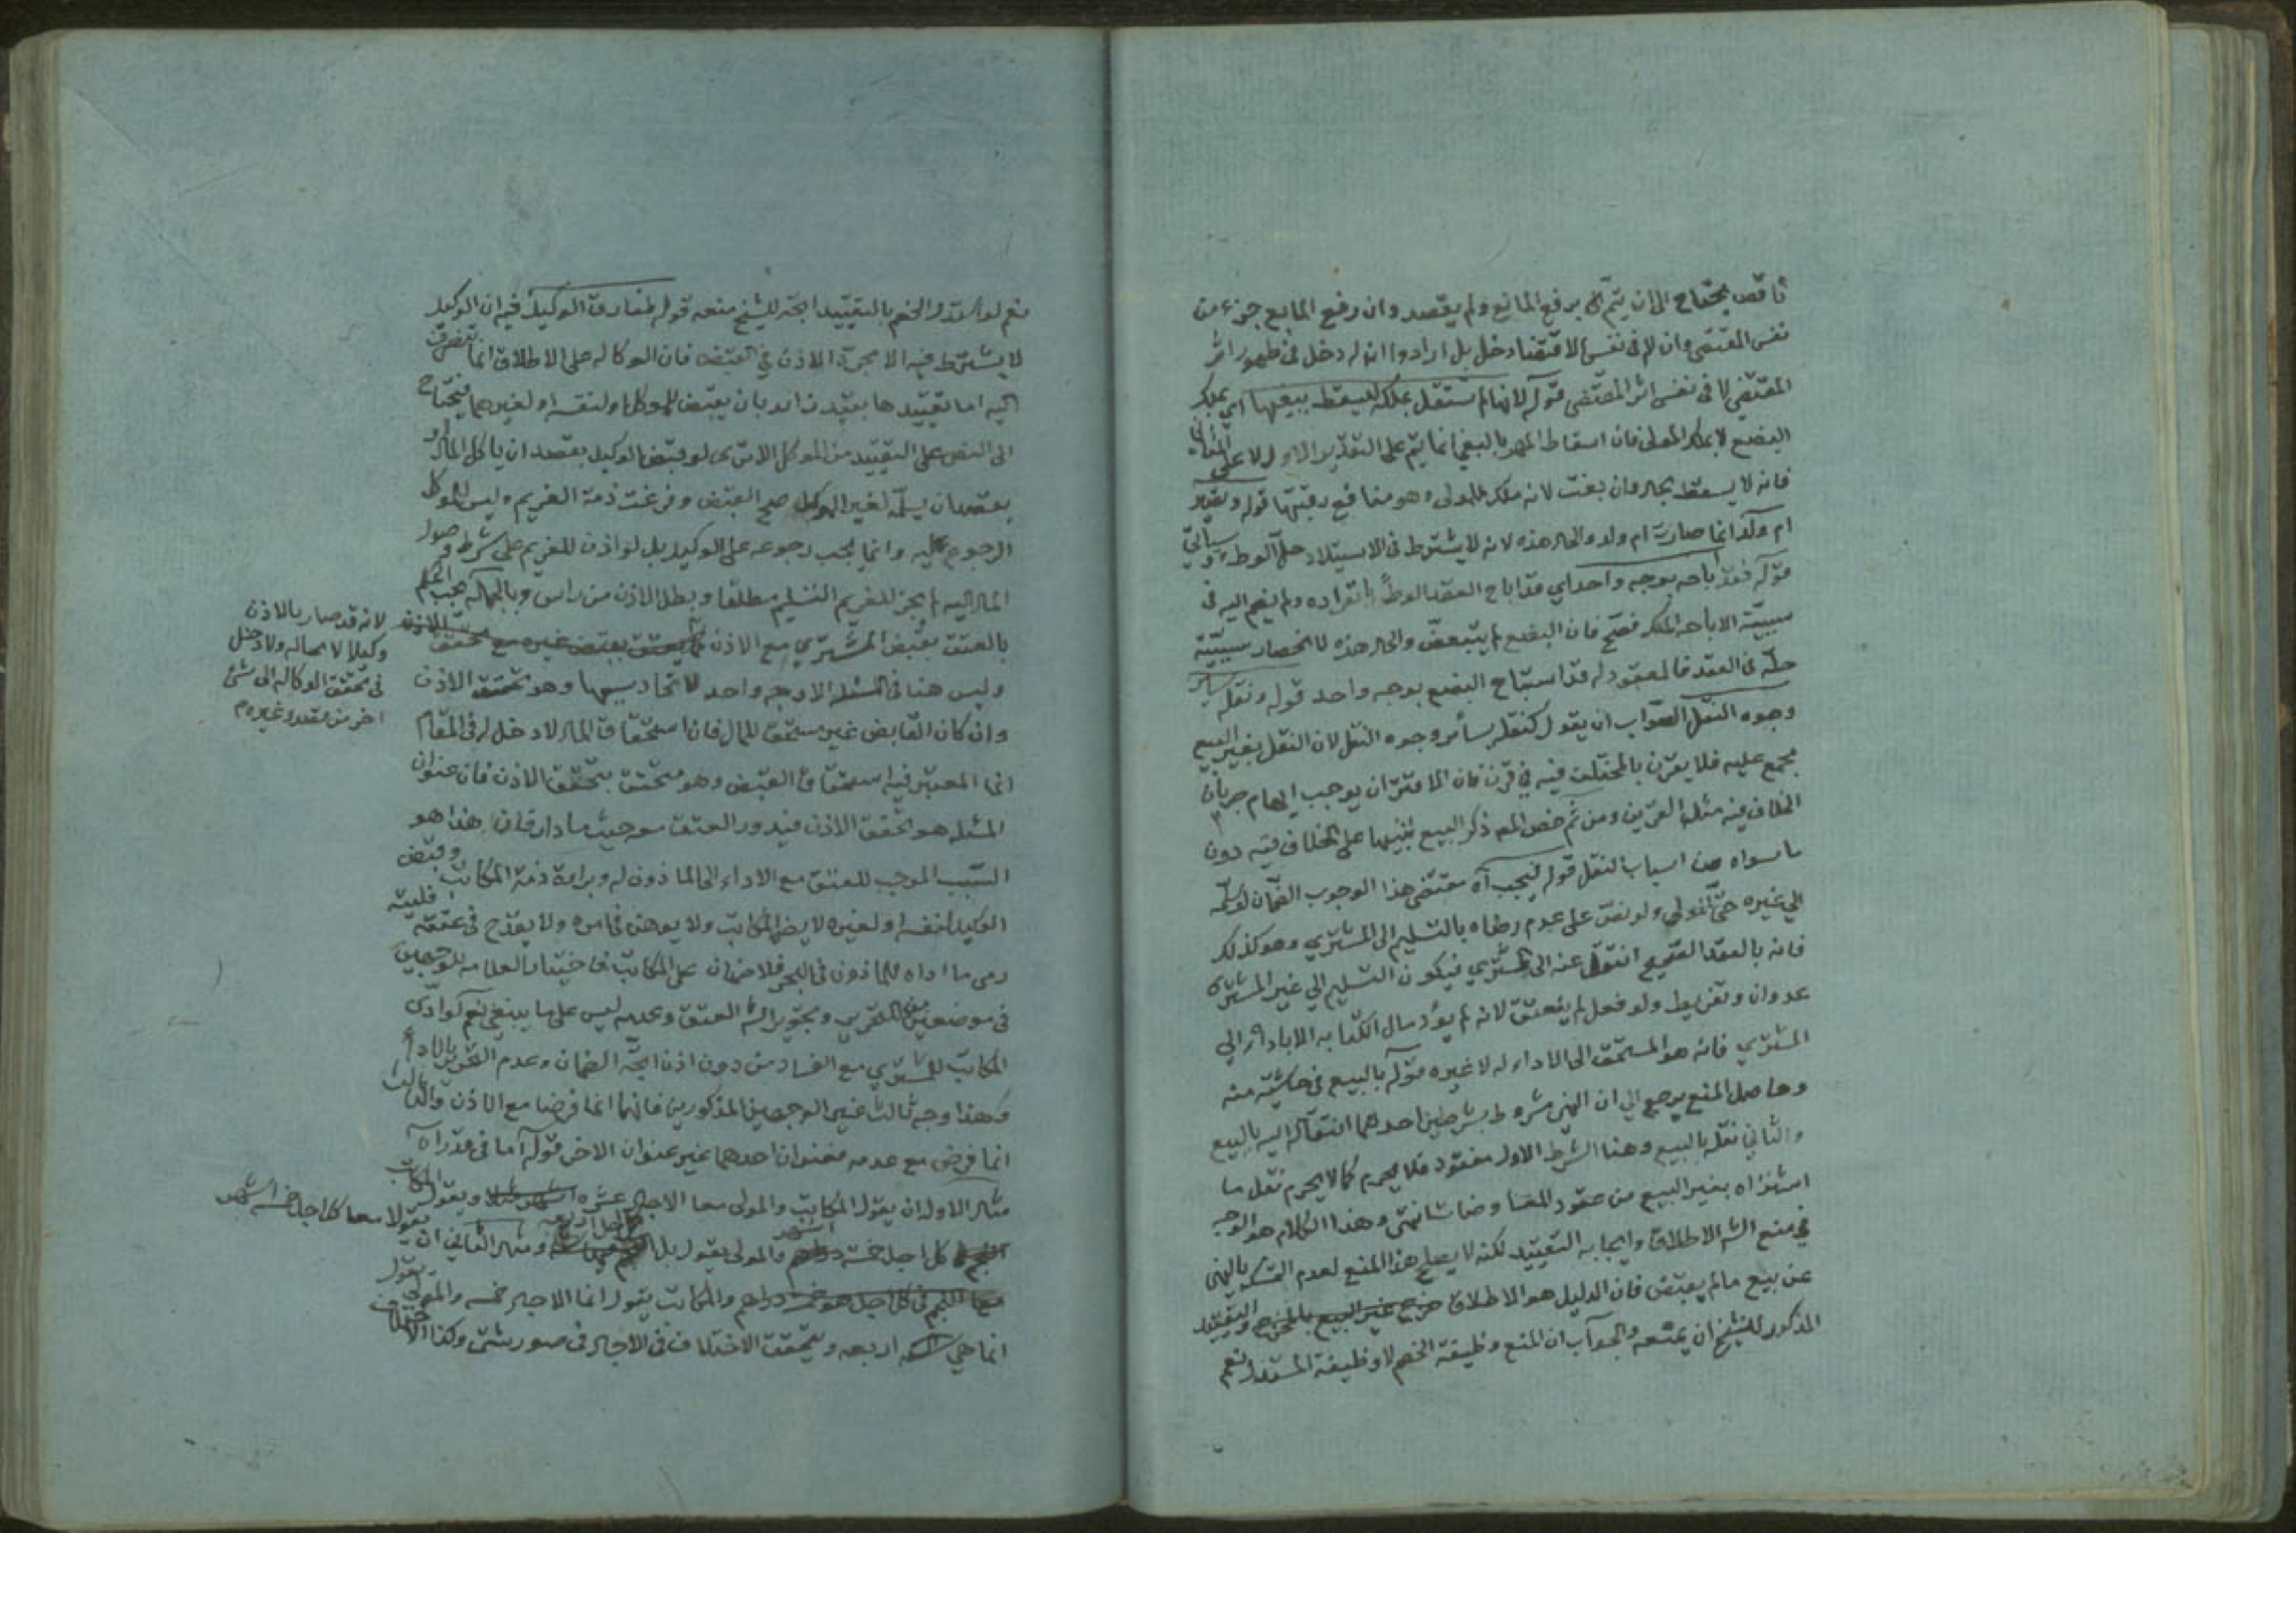 ناقص يحتاج الى ان يتم الى برفع المانع ولم يقصد وان رفع المانع جزء من
نفس المقتضى وان له في نفس الاقتضا دخل بل ارادوا انه له دخل في ظهور اثر
المقتضي لا في نفس اثر المقتضى قوله لانها لم تستقل بملكه ليسقط ببغيها اي بملك
البضع لا بملك المولى فان اسقاط المهر بالبغي انما يتم على التقدير الاول لا على الثاني
فانه لا يسقط بحال وان بغت لانه ملك للمولى وهو منافع رقبتها قوله وتصير
ام ولد انما صارت ام ولد والحال هذه لانه لا يشترط في الاستيلاد حل الوطء وسياتي
قوله فقد اباحه بوجه واحد اي قد اباح العقد الوطأ بانفراده ولم ينضم اليه في
سببية الاباحه الملك فصح فان البضع لم يتبعض والحال هذه لانحصار سببية
حله في العقد فالمعقود له قد استباح البضع بوجه واحد قوله ونقله بساير
وجوه النقل الصواب ان يقول كنقله بسائر وجوه النقل لان النقل بغير البيع
مجمع عليه فلا يقرن بالمختلف فيه في قرن فان الاقتران يوجب ايهام جريان
الخلاف فيه مثل القرين ومن ثم خص المص ذكر البيع تنبيها على الخلاف فيه دون
ما سواه من اسباب النقل قوله فيجب آه مقتضى هذا الوجوب الضمان لو سلمه
الي غيره حتى المولى ولو نص على عدم رضاه بالتسليم الى المشتري وهو كذلك
فانه بالعقد الصحيح انتقل عنه الى المشتري فيكون التسليم الي غير المشترى
عدوان وتفريط ولو فعل لم ينعتق لانه لم يؤد مال الكتابه الا بادائه الي
المشتري فانه هو المستحق الى الاداء له لا غيره قوله بالبيع في حاشية منه
وحاصل المنع يرجع الي ان النهي مشروط بشرطين احدهما انتقاله اليه بالبيع
والثاني نقله بالبيع وهنا الشرط الاول مفقود فلا يحرم كما لا يحرم نقل ما
اشتراه بغير البيع من عقود المعاوضات انتهى وهذا الكلام هو الوجه
في منع الشه الاطلاق وايجابه التقييد لكنه لا يصلح هذا المنع لعدم التمسك بالنهي
عن بيع مالم يقبض فان الدليل هو الاطلاق خرج غير البيع بالمخرج والتقييد
المذكور للشيخ ان يمنعه والجواب ان المنع وظيفة الخصم لا وظيفة المستدل نعم
نعم لو استدل الخصم بالتقييد اتجه للشيخ منعه قوله لمفارق الوكيل فيه ان الوكيل
لا يشترط فيه الا مجرد الاذن في القبض فان الوكاله على الاطلاق انما تنصرف
اليه اما تقييدها بقيد زائد بان يقبض للموكل او لنفسه او لغيرهما فيحتاج
الى النص على التقييد من الموكل الا ترى لو قبض الوكيل بقصد ان ياكل المال او
بقصد ان يسلمه لغير الموكل صح القبض وفرغت ذمة الغريم وليس للموكل
الرجوع عليه وانما يجب رجوعه على الوكيل بل لو اذن للغريم على شرط وصول
المال اليه لم يجز للغريم التسليم مطلقا وبطل الاذن من راس وبالجمله يجب الحكم
بالعتق بقبض المشتري مع الاذن كما يعتق بقبض غيره مع تحقق الاذن
لانه قد صار بالاذن
وكيلا لا محاله ولا دخل
في تحقق الوكاله الى شئ
اخر من قصد وغيره م
وليس هنا في المسئله الا وجه واحد لاتحاد سببها وهو تحقق الاذن
وان كان القابض غير مستحق للمال فان استحقاق المال لا دخل له في المقام
انما المعتبر فيه استحقاق القبض وهو متحقق بتحقق الاذن فان عنوان
المسئله هو تحقق الاذن فيدور العتق معه حيثما دار فان هذا هو
السبب الموجب للعتق مع الاداء الى الماذون له وبراءة ذمة المكاتب وقبض
الوكيل لنفسه او لغيره لا يضر المكاتب ولا يوهن في امره ولا يقدح في عتقه فليته
رمى ما اداه للماذون في البحر فلا ضمان على المكاتب فاختيار العلامه للوجهين
في موضعين من التحرير وتجويز الشه العتق وعدمه ليس على ما ينبغي نعم لو ادى
المكاتب للمشتري مع الفساد من دون اذن اتجه الضمان وعدم التحرير بالاداء
وهذا وجه ثالث غير الوجهين المذكورين فانهما انما فرضا مع الاذن والثالث
انما فرض مع عدمه فعنوان احدهما غير عنوان الاخر قوله اما في قدر آه
مثال الاول ان يقول المكاتب والمولى معا الاجل عشره اشهر مثلا ويقول المكاتب
كل اجل خمسة اشهر والمولى يقول بل كل اجل اربعه ومثال الثاني ان
يقولا معا كل اجل خمسة اشهر
والمكاتب يقول انما الاجل خمسه والمولى يقول
انما هي اربعه ويتحقق الاختلاف في الاجل في صور شتى وكذا الاختلاف